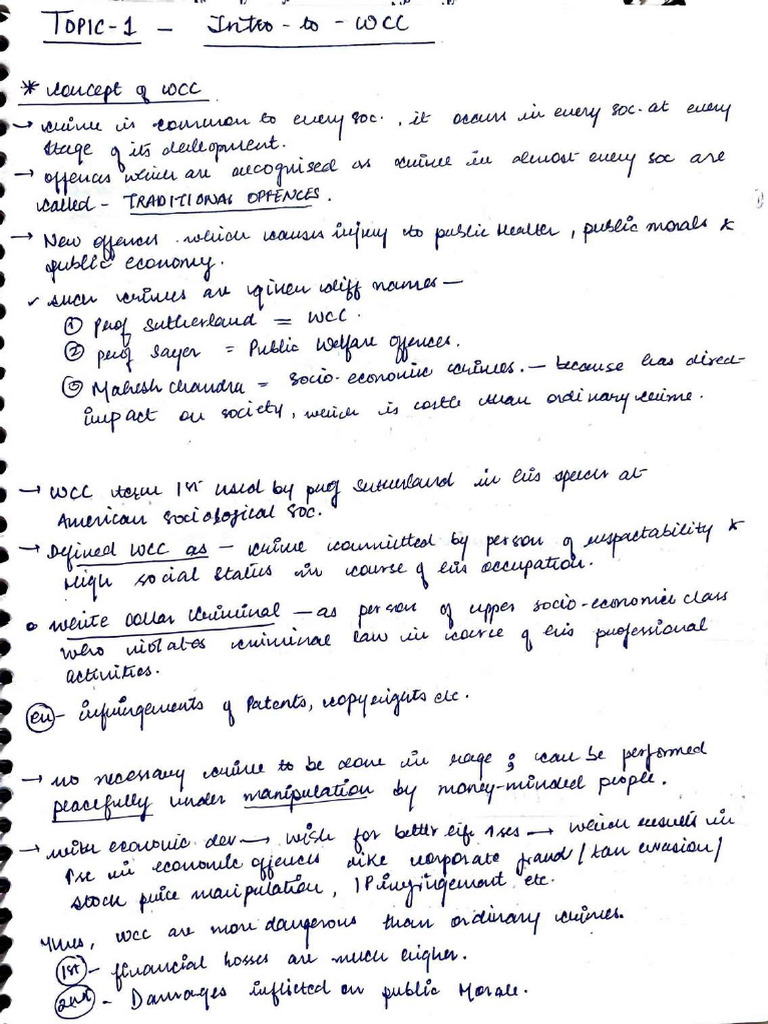 TOPIC-1 - Intro-to-WCC
* concept of WCC
→ crime is common to every soc., it occurs in every soc. at every
stage of its development.
→ offences which are recognised as crime in almost every soc are
called - TRADITIONAL OFFENCES.
→ New offences which causes injury to public Health, public morals &
public economy.
✓ such crimes are given diff names —
① Prof Sutherland = WCC.
② prof Sayer = Public Welfare offences.
③ Mahesh Chandra = socio-economic crimes. — because has direct
impact on society, which is costly than ordinary crime.
→ WCC term 1st used by prof Sutherland in his speech at
American Sociological Soc.
→ Defined WCC as — crime committed by person of respectability &
High social status in course of his occupation.
• White collar criminal — as person of upper socio-economic class
who violates criminal law in course of his professional
activities.
ex - infringements of Patents, copyrights etc.
→ no necessary crime to be done in rage ; can be performed
peacefully under manipulation by money-minded people.
→ with economic dev → wish for better life rises → which results in
↑se in economic offences like corporate fraud / tax evasion /
stock price manipulation, IP infringement etc.
Thus, WCC are more dangerous than ordinary crimes.
1st - financial losses are much higher.
2nd - Damages inflicted on public Morale.